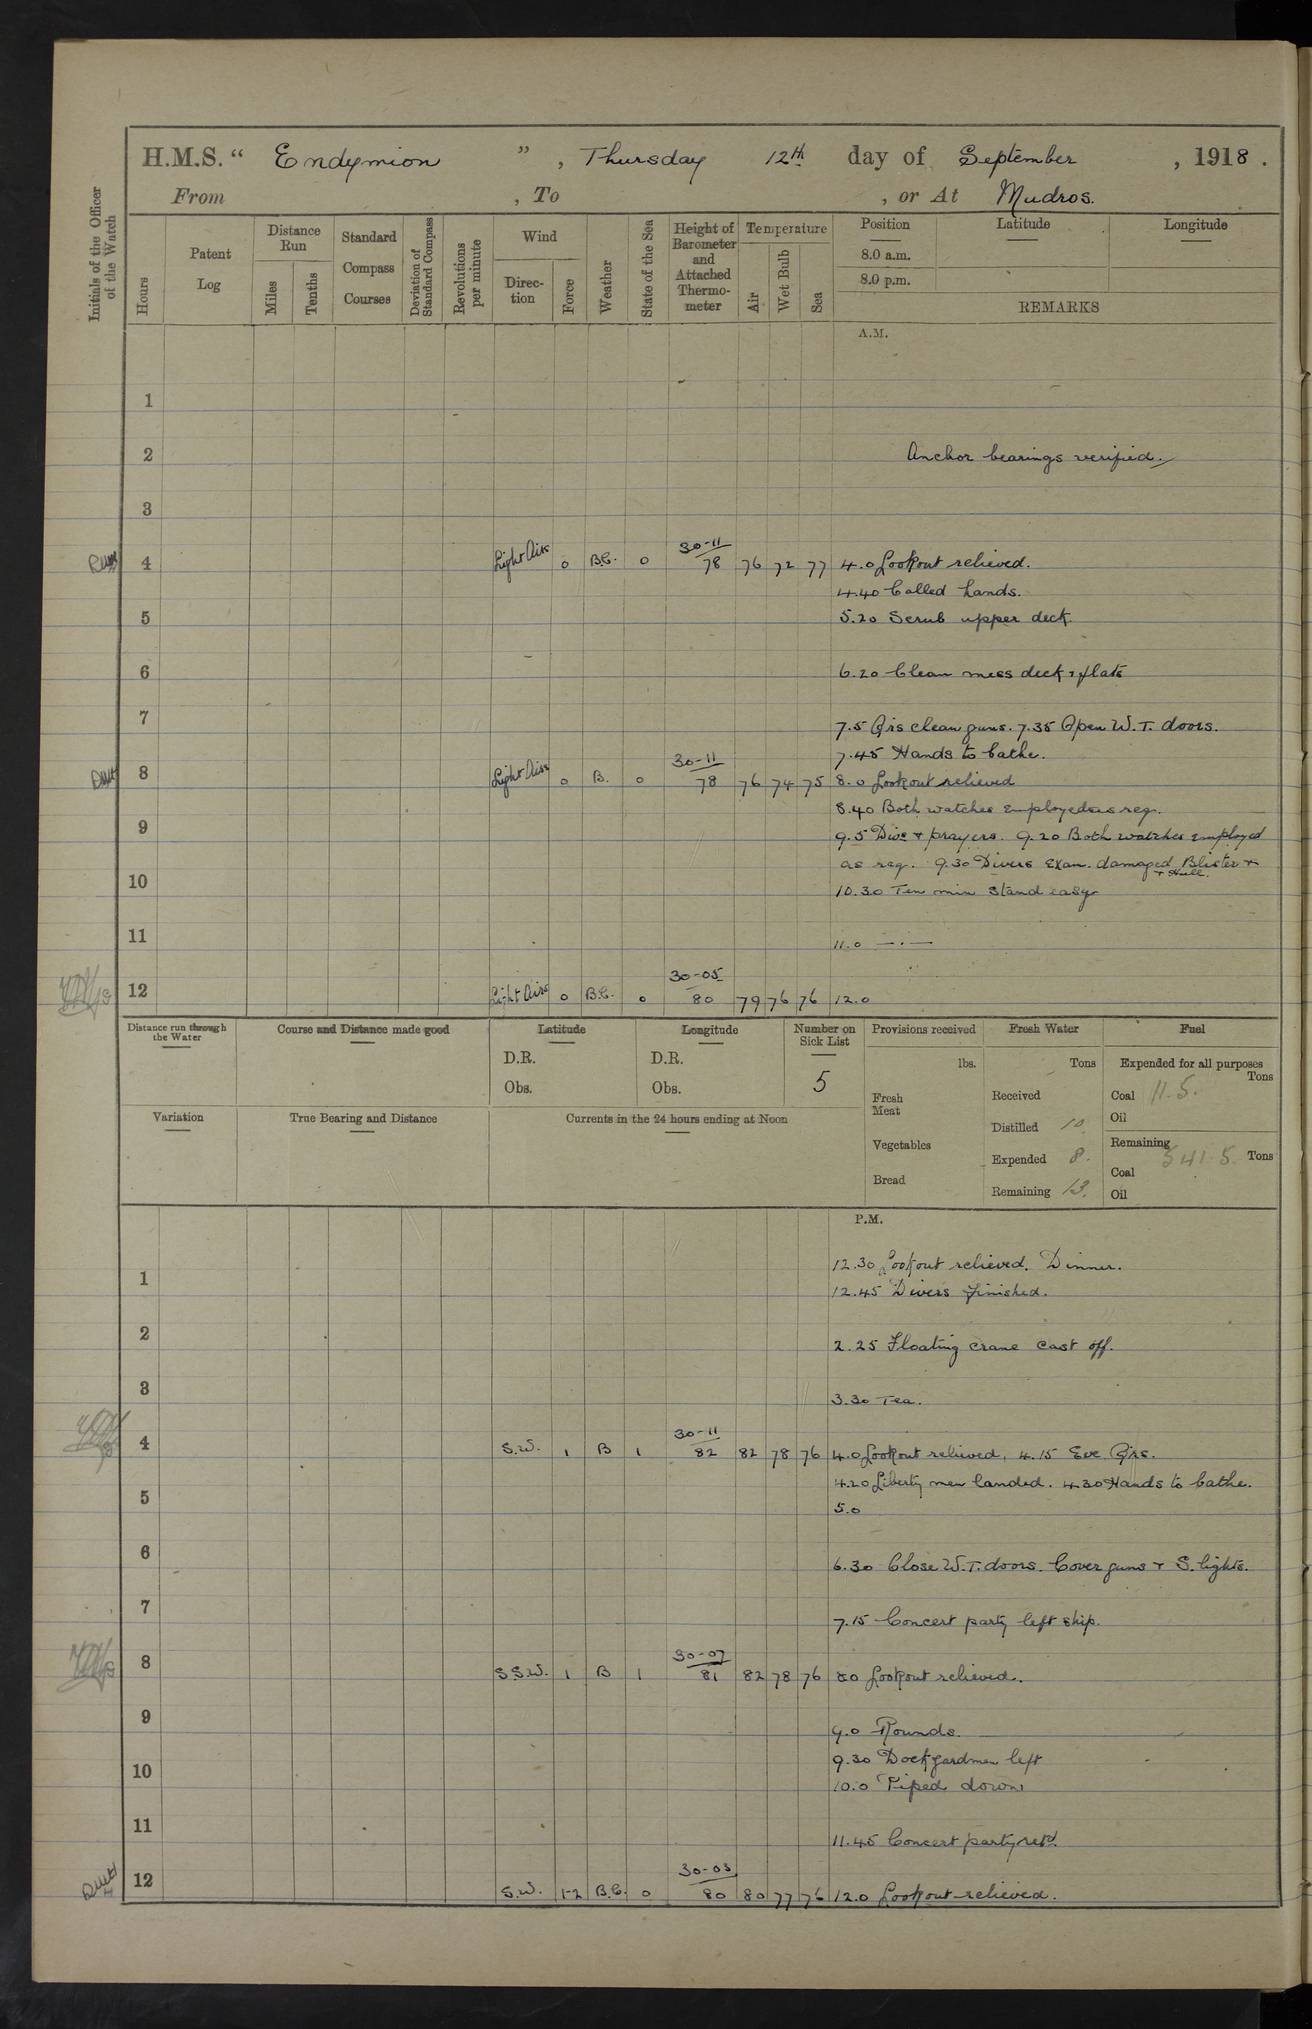 H.M.S. “ Endymion ” , Thursday 12th day of September , 1918 .
From , To , or At Mudros.
Initials of the Officer of the Watch
Hours
Patent Log
Distance Run
Miles
Tenths
Standard Compass Courses
Deviation of Standard Compass
Revolutions per minute
Wind
Direction
Force
Weather
State of the Sea
Height of Barometer and Attached Thermometer
Temperature
Air
Wet Bulb
Sea
Position
Latitude
Longitude
8.0 a.m.
8.0 p.m.
REMARKS
A.M.
1
2 Anchor bearings verified.
3
4 Light Airs 0 B.C. 0 30-11 78 76 72 77 4.0 Lookout relieved.
4.40 Called hands.
5 5.20 Scrub upper deck
6 6.20 Clean mess deck & flats
7 7.5 Qrs clean guns. 7.35 Open W.T. doors.
7.45 Hands to bathe.
8 Light Airs 0 B. 0 30-11 78 76 74 75 8.0 Lookout relieved
8.40 Both watches employed as req.
9 9.5 Divs & prayers. 9.20 Both watches employed
as req. 9.30 Divers Exam. damaged Blister &
& Hull.
10 10.30 Ten min Stand easy
11 11.0 — . —
12 Light Airs 0 B.C. 0 30-05 80 79 76 76 12.0
Distance run through the Water
Course and Distance made good
Latitude
D.R.
Obs.
Longitude
D.R.
Obs.
Number on Sick List
5
Provisions received
lbs.
Fresh Meat
Vegetables
Bread
Fresh Water
Tons
Received
Distilled 10.
Expended 8.
Remaining 13.
Fuel
Expended for all purposes
Tons
Coal 11.5.
Oil
Remaining
Tons
Coal 541.5.
Oil
Variation
True Bearing and Distance
Currents in the 24 hours ending at Noon
P.M.
12.30 Lookout relieved. Dinner.
1 12.45 Divers finished.
2 2.25 Floating crane cast off.
3 3.30 Tea.
4 S.W. 1 B 1 30-11 82 82 78 76 4.0 Lookout relieved, 4.15 Eve Qrs.
4.20 Liberty men landed. 4.30 Hands to bathe.
5 5.0
6 6.30 Close W.T. doors. Cover guns & S. lights.
7 7.15 Concert party left ship.
8 S.S.W. 1 B 1 30-07 81 82 78 76 8.0 Lookout relieved.
9 9.0 Rounds.
9.30 Dockyardmen left
10 10.0 Piped down
11 11.45 Concert party retd.
12 S.W. 1-2 B.C. 0 30-03 80 80 77 76 12.0 Lookout relieved.